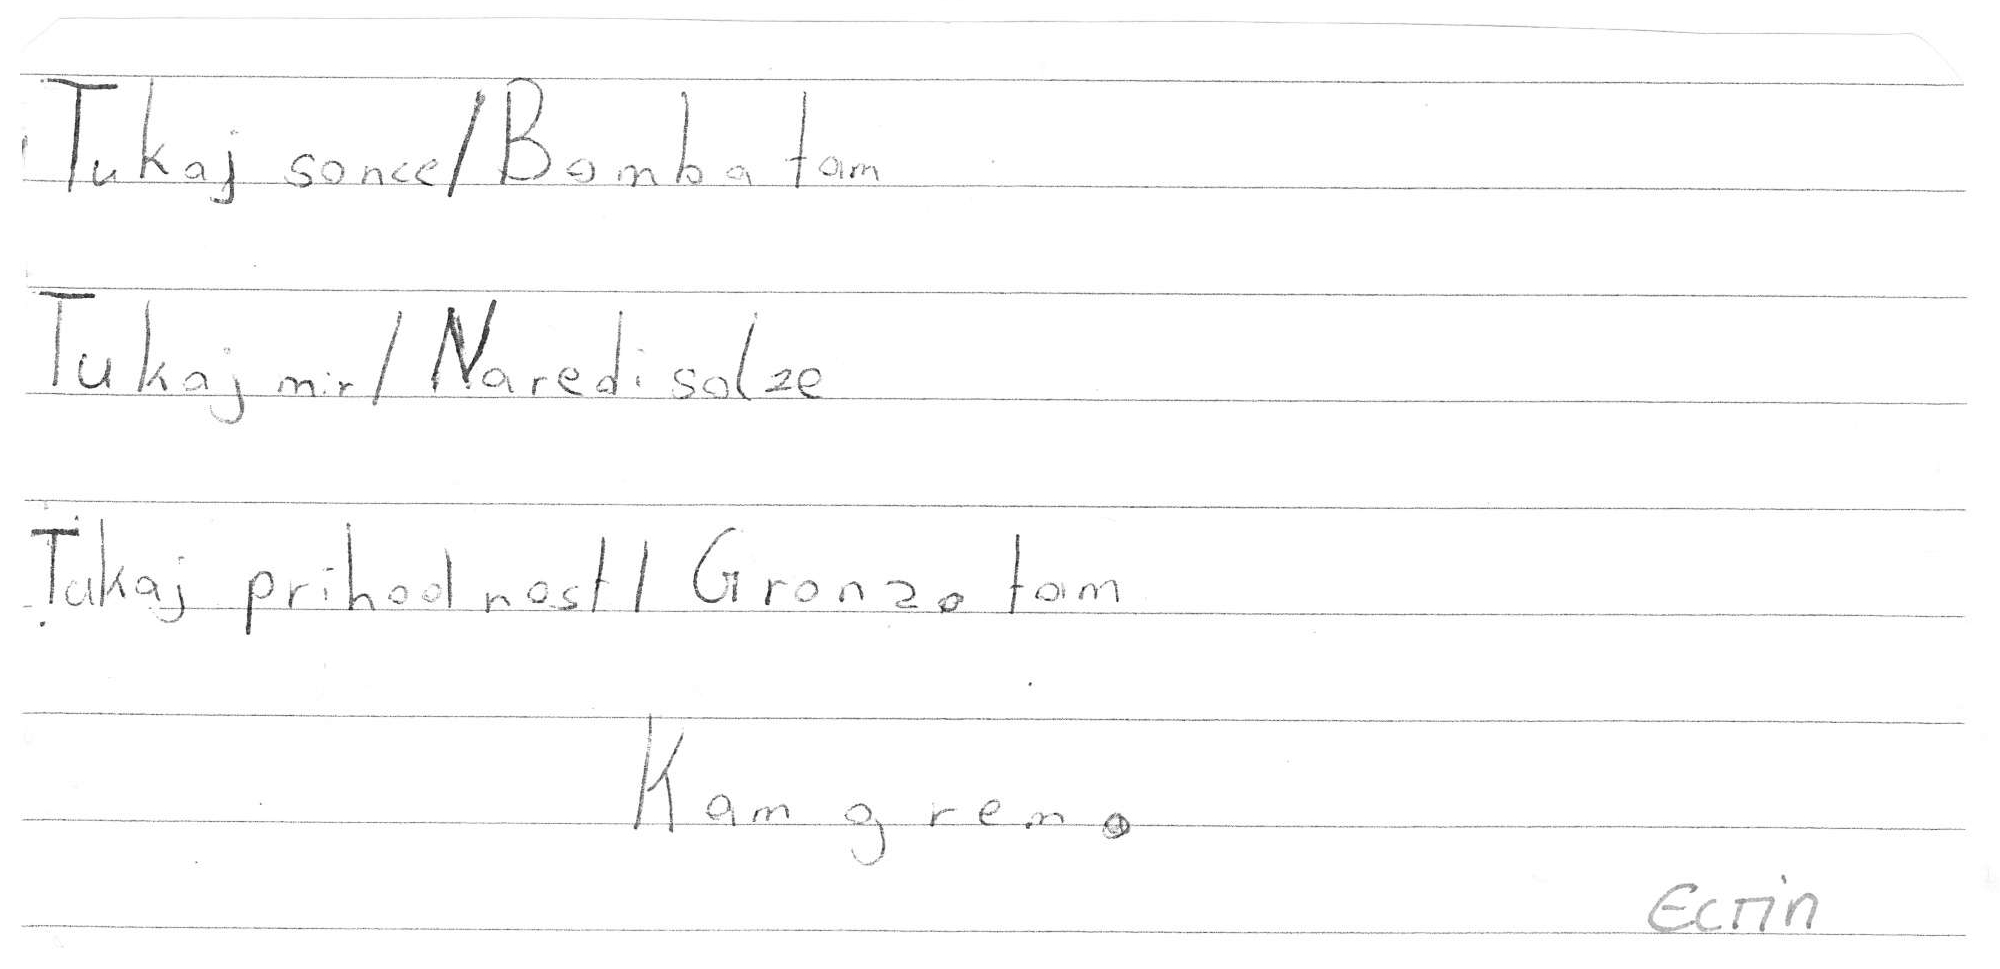 Tukaj sonce/Bomba tam
Tukaj mir/Naredi solze
Tukaj prihodnost/Gronzo tam
Kam gremo
Ecrin